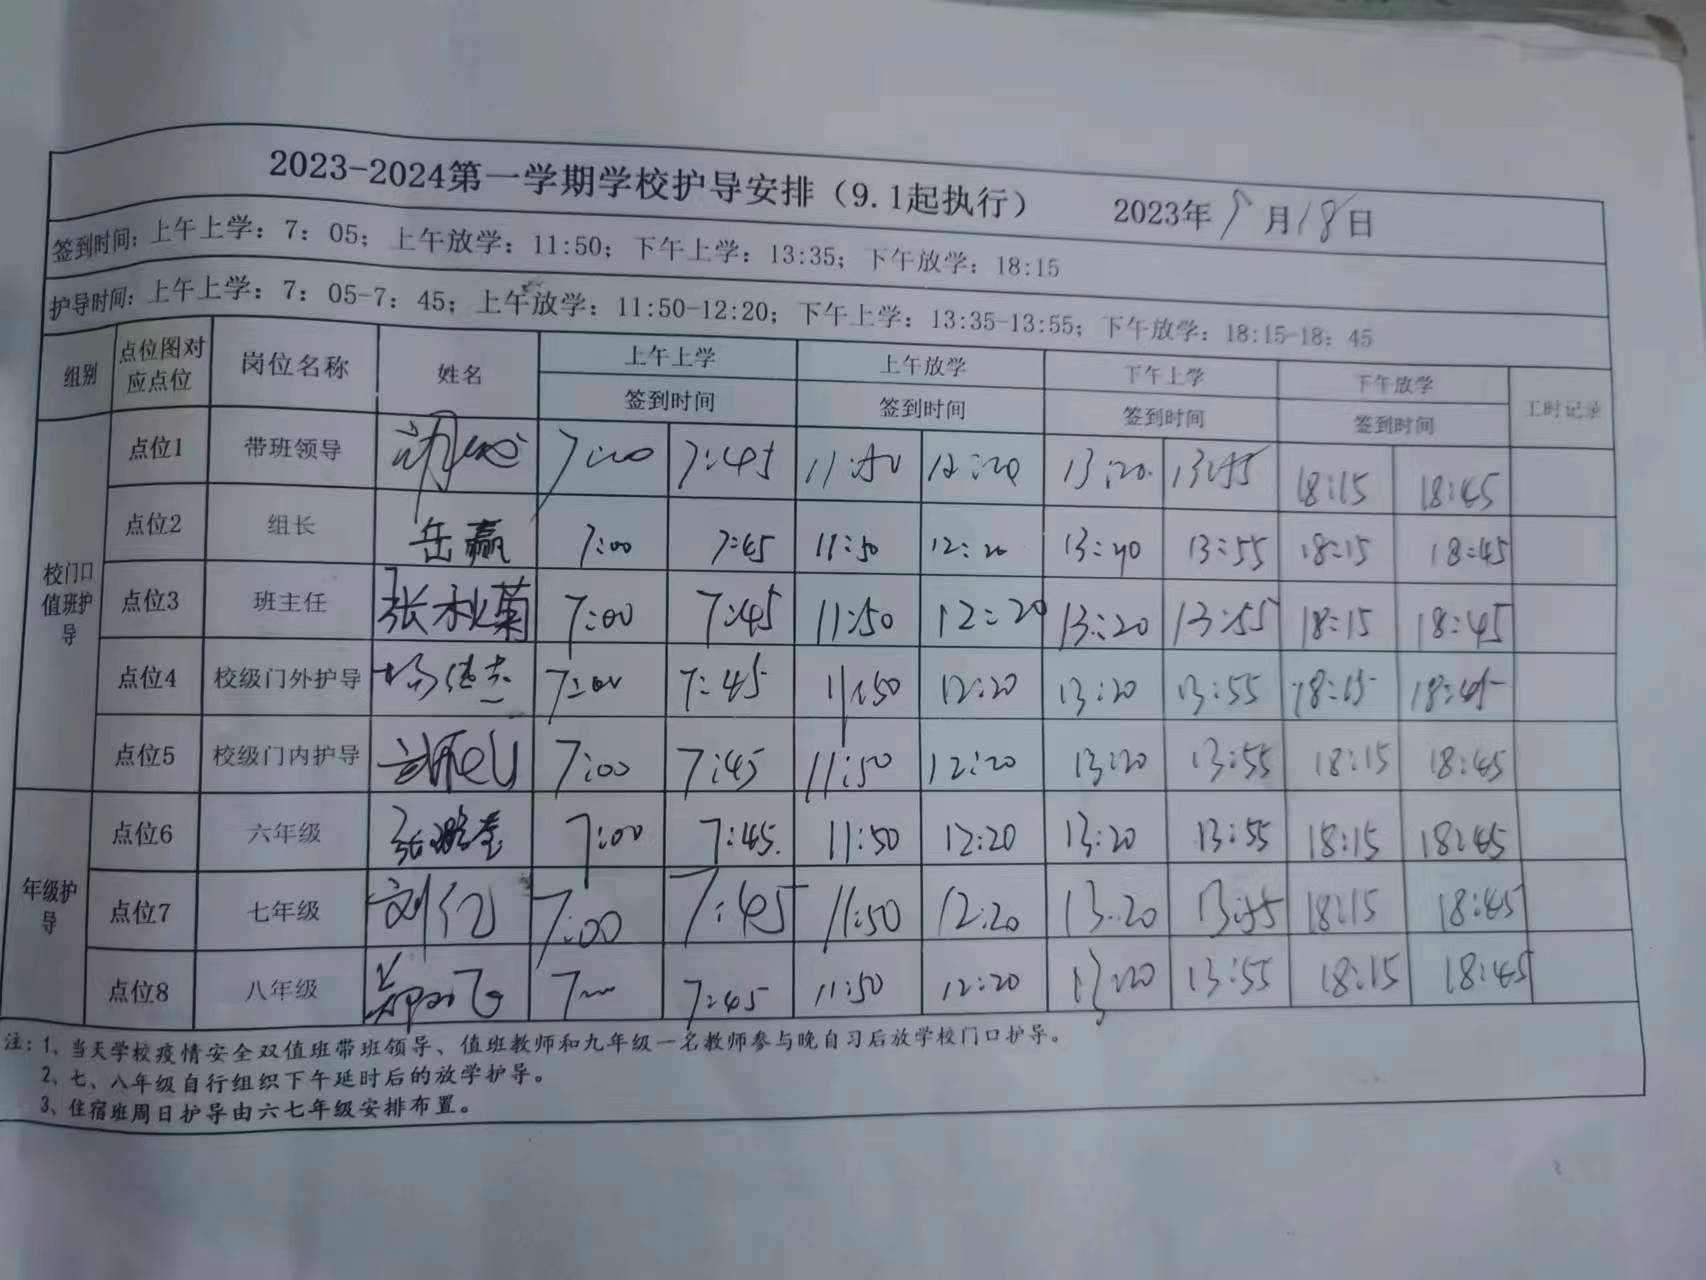 2023-2024第一学期学校护导安排（9.1起执行） 2023年9月18日
签到时间：上午上学：7：05；上午放学：11:50；下午上学：13:35；下午放学：18:15
护导时间：上午上学：7：05-7：45；上午放学：11:50-12:20；下午上学：13:35-13:55；下午放学：18:15-18：45
组别 点位图对应点位 岗位名称 姓名 上午上学 上午放学 下午上学 下午放学 工时记录
签到时间 签到时间 签到时间 签到时间
校门口值班护导
点位1 带班领导 7:00 7:45 11:50 12:20 13:20 13:55 18:15 18:45
点位2 组长 岳赢 7:00 7:45 11:50 12:20 13:20 13:55 18:15 18:45
点位3 班主任 张秋菊 7:00 7:45 11:50 12:20 13:20 13:55 18:15 18:45
点位4 校级门外护导 7:00 7:45 11:50 12:20 13:20 13:55 18:15 18:45
点位5 校级门内护导 7:00 7:45 11:50 12:20 13:20 13:55 18:15 18:45
年级护导
点位6 六年级 7:00 7:45 11:50 12:20 13:20 13:55 18:15 18:45
点位7 七年级 刘亿 7:00 7:45 11:50 12:20 13:20 13:55 18:15 18:45
点位8 八年级 7:00 7:45 11:50 12:20 13:20 13:55 18:15 18:45
注：1、当天学校疫情安全双值班带班领导、值班教师和九年级一名教师参与晚自习后放学校门口护导。
2、七、八年级自行组织下午延时后的放学护导。
3、住宿班周日护导由六七年级安排布置。